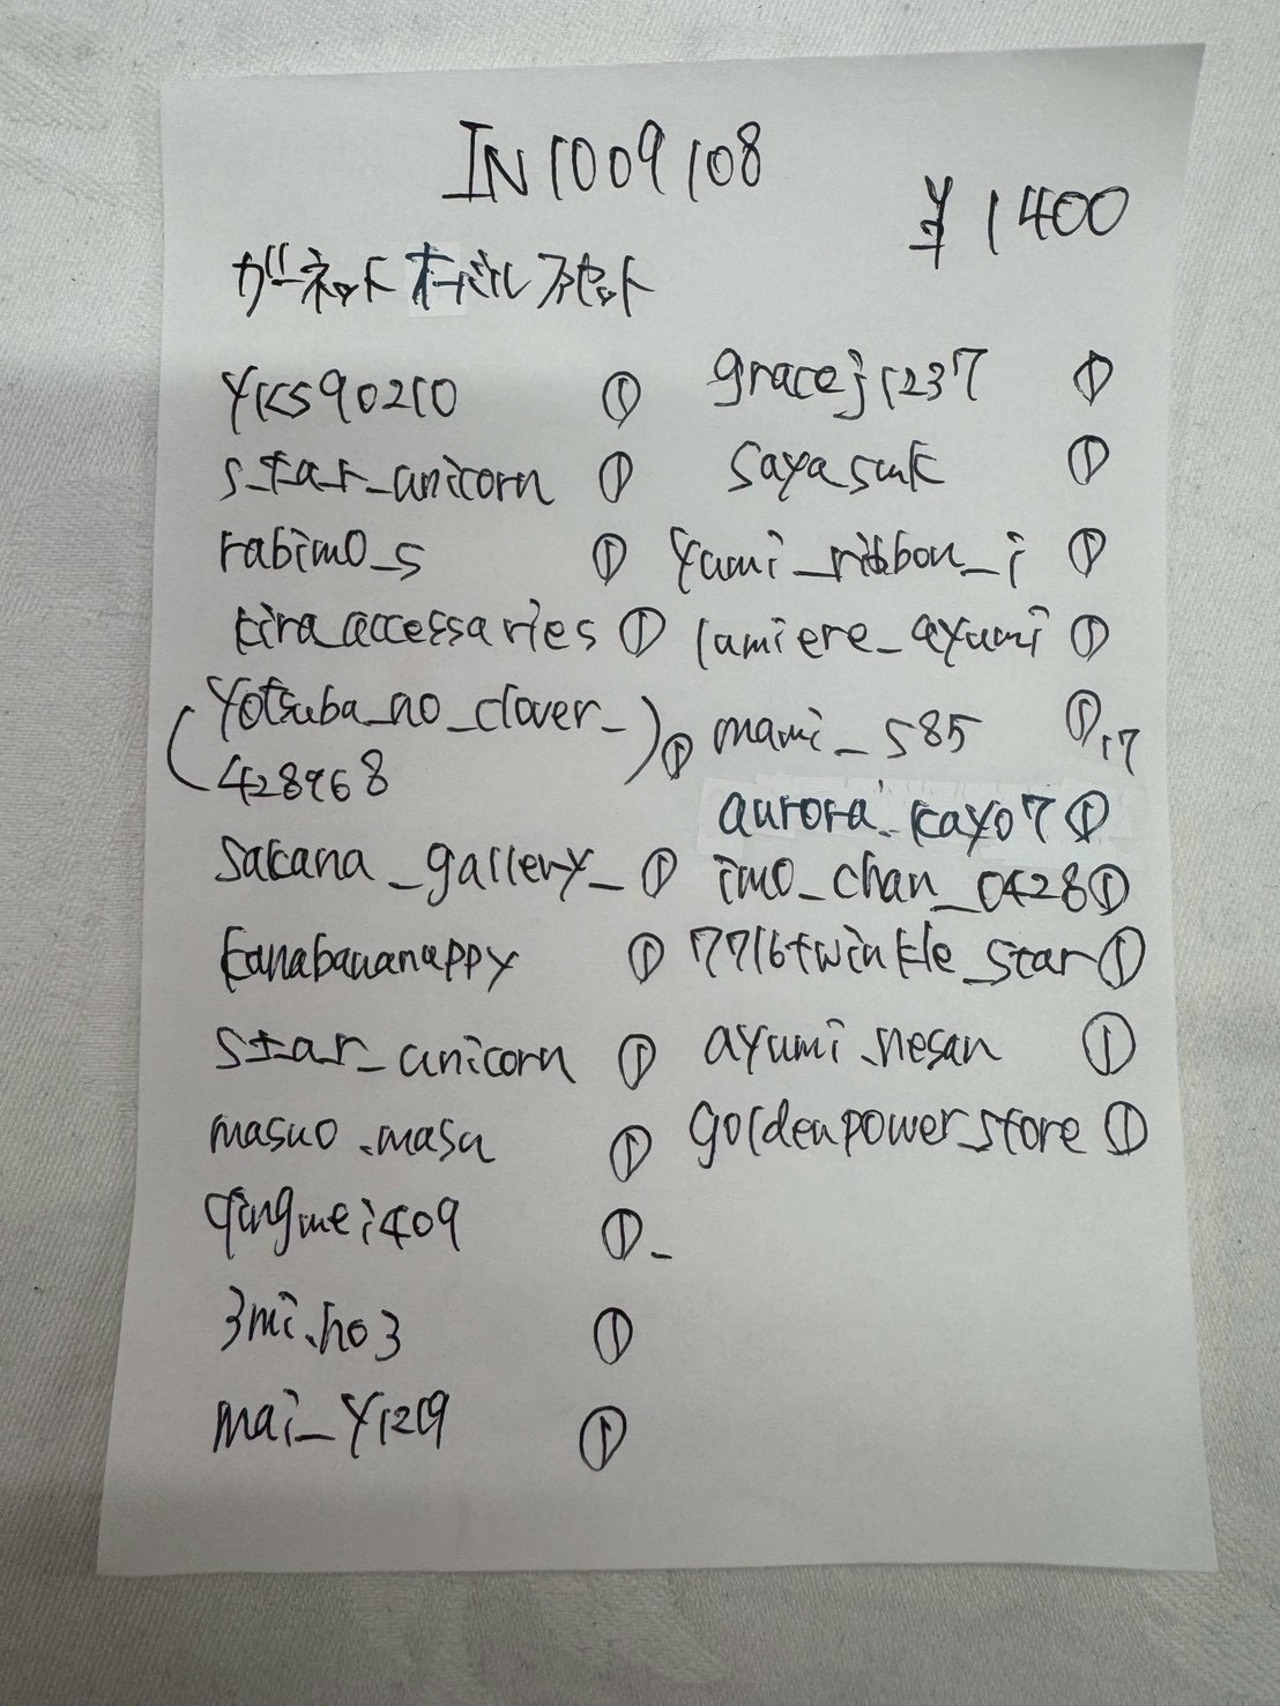 IN1009108
¥1400
ガーネットオーバルファセット
yks90210 ①
star_unicorn ①
rabimo_s ①
kira_accessaries ①
(yotsuba_no_clover_
428968) ①
sakana_gallery_ ①
kanabananappy ①
star_unicorn ①
masuo.masu ①
qingmei409 ①-
3mi.ho3 ①
mai_y1219 ①
gracej1237 ①
sayasuk ①
yumi_ribbon_i ①
lumiere_ayumi ①
mami_s85 ①,17
aurora.kayo7 ①
imo_chan_0428 ①
7716twinkle_star ①
ayumi.nesan ①
goldenpower_store ①